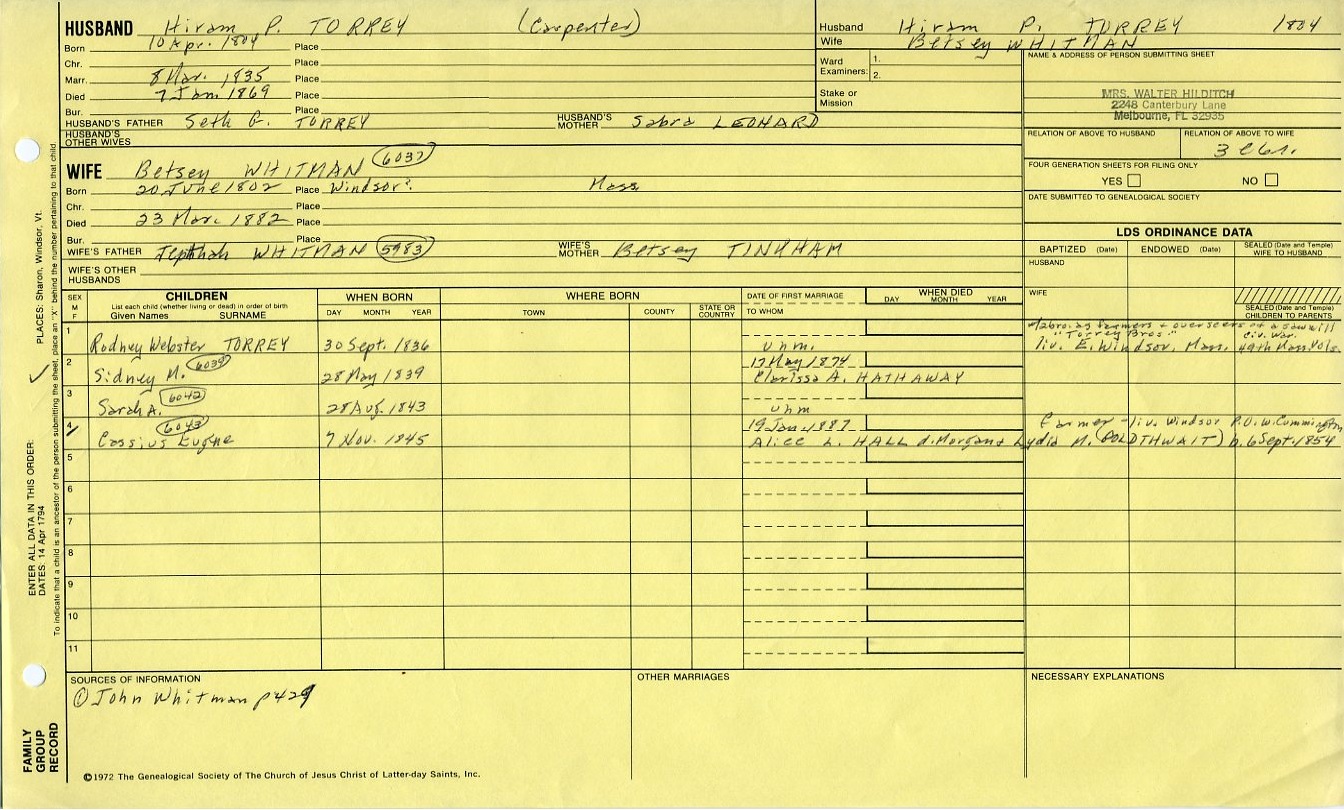 HUSBAND Hiram P. TORREY (Carpenter)
Born 10 Apr. 1804 Place
Chr. Place
Marr. 8 Mar. 1835 Place
Died 7 Jan. 1869 Place
Bur. Place
HUSBAND'S FATHER Seth G. TORREY HUSBAND'S MOTHER Sabra LEONARD
HUSBAND'S OTHER WIVES
Husband Hiram P. TORREY 1804
Wife Betsey WHITMAN
Ward Examiners: 1.
2.
Stake or Mission
NAME & ADDRESS OF PERSON SUBMITTING SHEET
MRS. WALTER HILDITCH
2248 Canterbury Lane
Melbourne, FL 32935
RELATION OF ABOVE TO HUSBAND RELATION OF ABOVE TO WIFE
FOUR GENERATION SHEETS FOR FILING ONLY
YES NO
DATE SUBMITTED TO GENEALOGICAL SOCIETY
WIFE Betsey WHITMAN 6037
Born 20 June 1802 Place Windsor? Mass
Chr. Place
Died 23 Mar. 1882 Place
Bur. Place
WIFE'S FATHER Jephthah WHITMAN 5983 WIFE'S MOTHER Betsey TINKHAM
WIFE'S OTHER HUSBANDS
LDS ORDINANCE DATA
BAPTIZED (Date) ENDOWED (Date) SEALED (Date and Temple) WIFE TO HUSBAND
HUSBAND
WIFE
SEALED (Date and Temple) CHILDREN TO PARENTS
SEX M F
CHILDREN
List each child (whether living or dead) in order of birth
Given Names SURNAME
WHEN BORN
DAY MONTH YEAR
WHERE BORN
TOWN COUNTY STATE OR COUNTRY
DATE OF FIRST MARRIAGE
TO WHOM
WHEN DIED
DAY MONTH YEAR
1 Rodney Webster TORREY 30 Sept. 1836 unm.
farmers + overseers of a sawmill
"Torrey Bros." Civ. War.
liv. E. Windsor, Mass. 49th Mass Vols.
2 Sidney M. 6039 28 May 1839 17 May 1874
Clarissa A. HATHAWAY
3 Sarah A. 6042 28 Aug. 1843 unm
4 Cassius Eugne 6043 7 Nov. 1845 19 Jan. 1887
Alice L. HALL d. Morgan + Lydia M. (GOLDTHWAIT) b. 6 Sept. 1854
Farmer - liv. Windsor P.O. W. Cummington
5
6
7
8
9
10
11
SOURCES OF INFORMATION
① John Whitman p 429
OTHER MARRIAGES
NECESSARY EXPLANATIONS
©1972 The Genealogical Society of The Church of Jesus Christ of Latter-day Saints, Inc.
FAMILY GROUP RECORD
ENTER ALL DATA IN THIS ORDER:
DATES: 14 Apr 1794
PLACES: Sharon, Windsor, Vt.
To indicate that a child is an ancestor of the person submitting the sheet, place an "X" behind the number pertaining to that child.